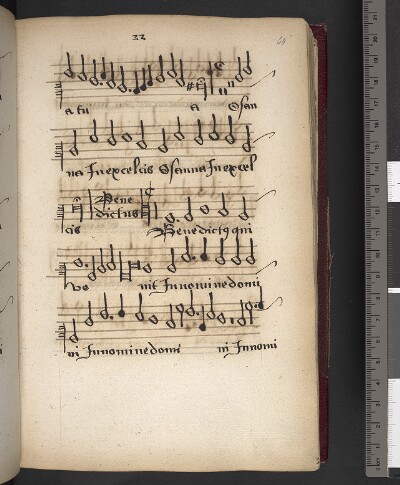 22
a tu a Osan
na In excelcis Osanna In excel
Bene
dictus
cis Benedictꝯ qui
ve nit In nomine domi
ni In nomine domi ni In nomi